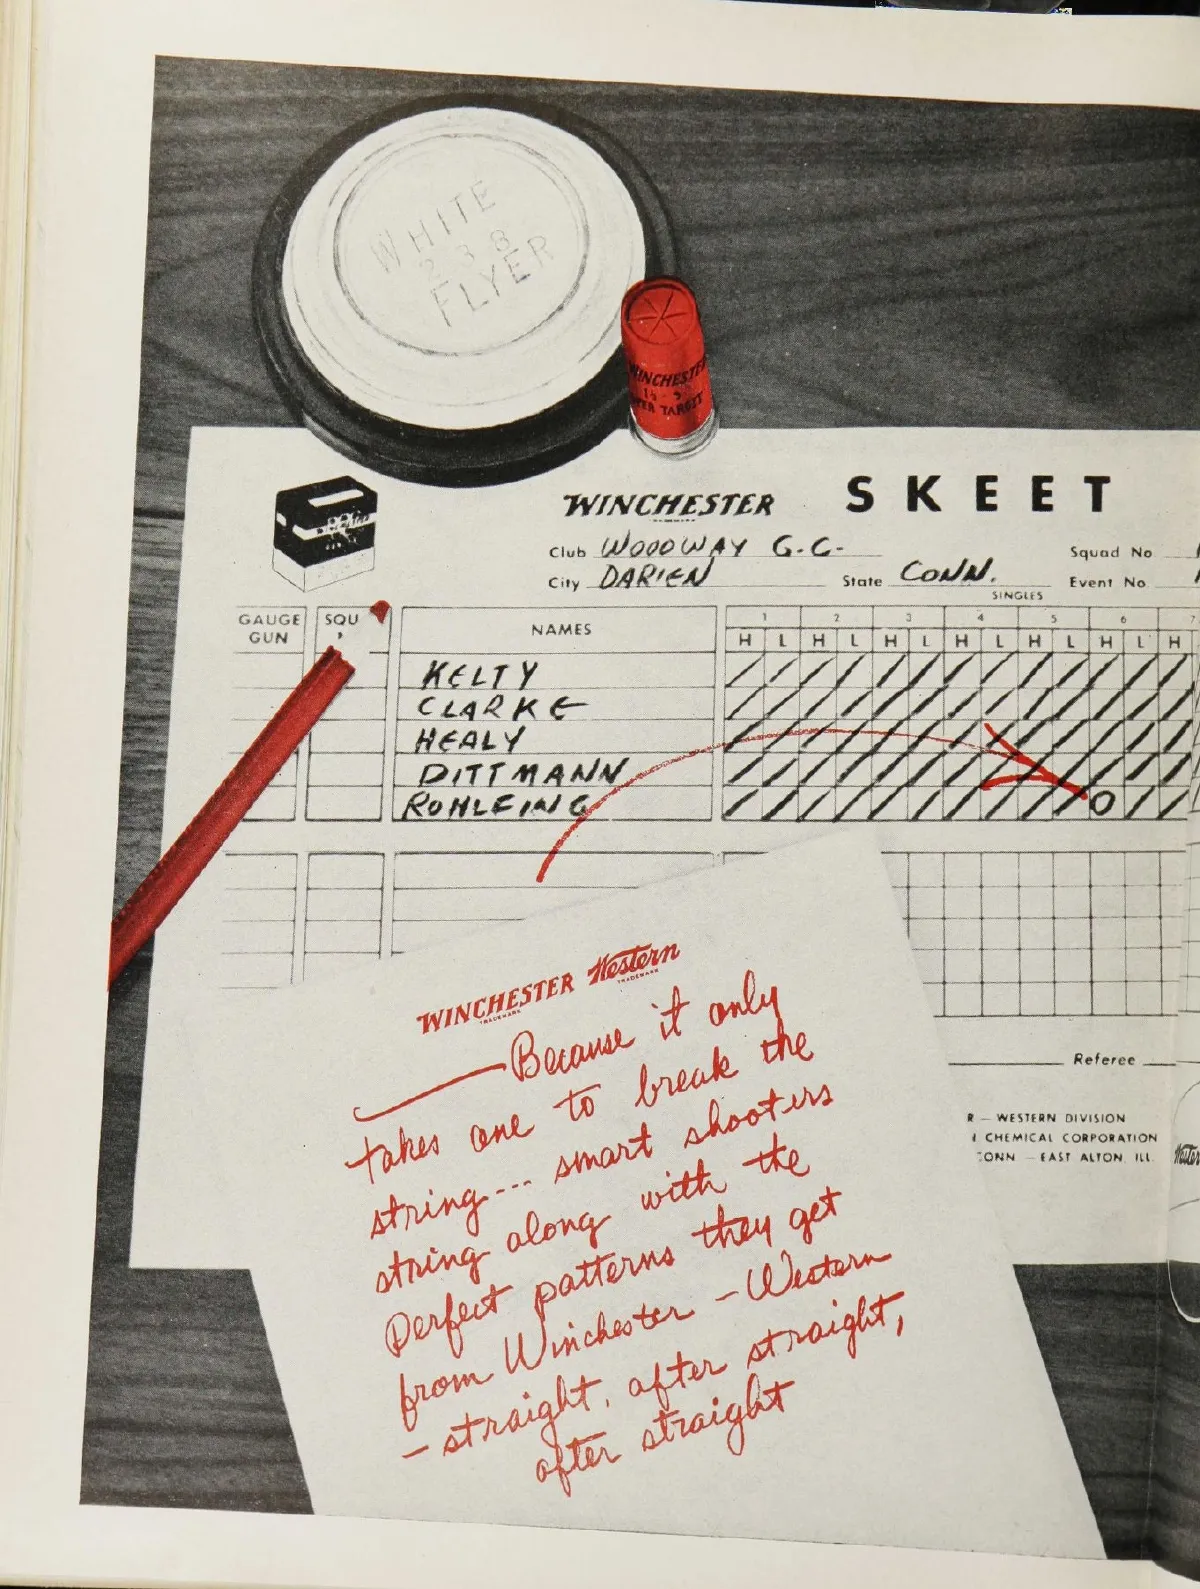 WHITE
238
FLYER
WINCHESTER
SUPER TARGET
WINCHESTER SKEET
Club WOODWAY G.C. Squad No
City DARIEN State CONN. Event No
SINGLES
GAUGE GUN SQU NAMES 1 2 3 4 5 6 7
H L H L H L H L H L H L H
KELTY
CLARKE
HEALY
DITTMANN
ROHLFING
O
WINCHESTER Western
TRADEMARK TRADEMARK
Because it only
takes one to break the
string --- smart shooters
string along with the
Perfect patterns they get
from Winchester - Western
- straight, after straight,
after straight
Referee
R - WESTERN DIVISION
CHEMICAL CORPORATION
CONN - EAST ALTON, ILL.